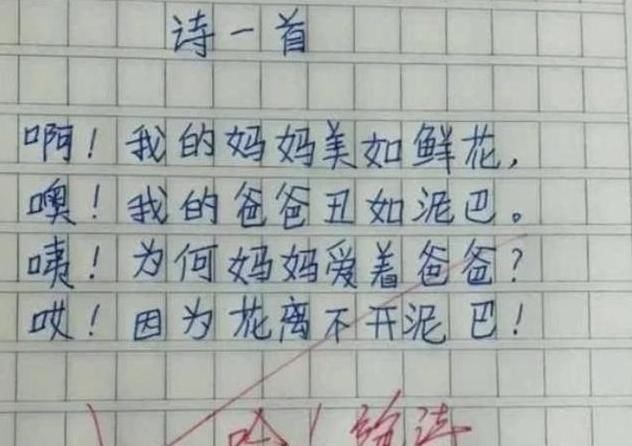 诗一首
啊！我的妈妈美如鲜花，
噢！我的爸爸丑如泥巴。
咦！为何妈妈爱着爸爸？
哎！因为花离不开泥巴！